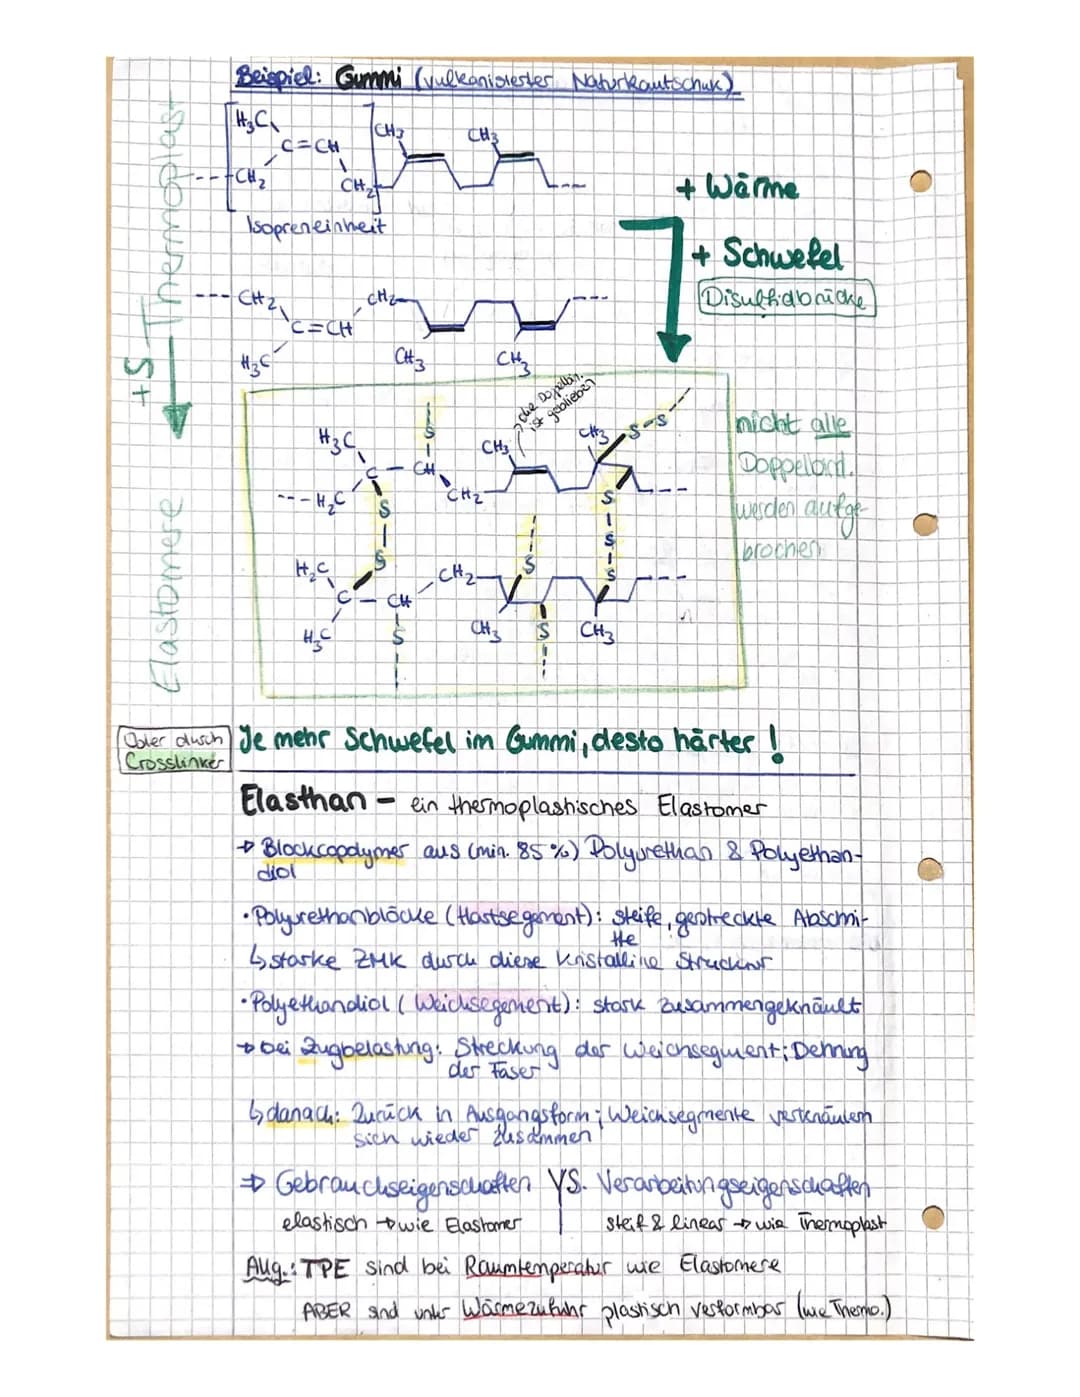 Beispiel: Gummi (vulkanisierter Naturkautschuk)
H₃C
C=CH
---CH₂
CH₂
CH₃
CH₃
---
Isopreneinheit
+ Wärme
+ Schwefel
Disulfidbrücke
Thermoplast
+S
Elastomere
--- CH₂
CH₂
---
C=CH
H₃C
CH₃
CH₃
eine Doppelbin.
ist geblieben
H₃C
S
CH₃
CH₃
S-S
C - CH
---H₂C
CH₂
---
S
S
S
S
S
S
H₂C
CH₂
---
C - CH
H₃C
S
CH₃
S
CH₃
nicht alle
Doppelbind.
werden aufge-
brochen
Oder durch
Crosslinker
Je mehr Schwefel im Gummi, desto härter !
Elasthan - ein thermoplastisches Elastomer
→ Blockcopolymer aus (min. 85 %) Polyurethan & Polyethan-
diol
• Polyurethanblöcke (Hartsegement): steife, gestreckte Abschni-
tte
↳ starke ZMK durch diese kristalline Struktur
• Polyethandiol (Weichsegement): stark zusammengeknäult
→ bei Zugbelastung: Streckung der Weichsegment; Dehnung
der Faser
↳ danach: Zurück in Ausgangsform; Weichsegmente verknäulen
sich wieder zusammen
⇒ Gebrauchseigenschaften VS. Verarbeitungseigenschaften
elastisch → wie Elastomer
steif & linear → wie Thermoplast
Allg.: TPE sind bei Raumtemperatur wie Elastomere
ABER sind unter Wärmezufuhr plastisch verformbar (wie Thermo.)